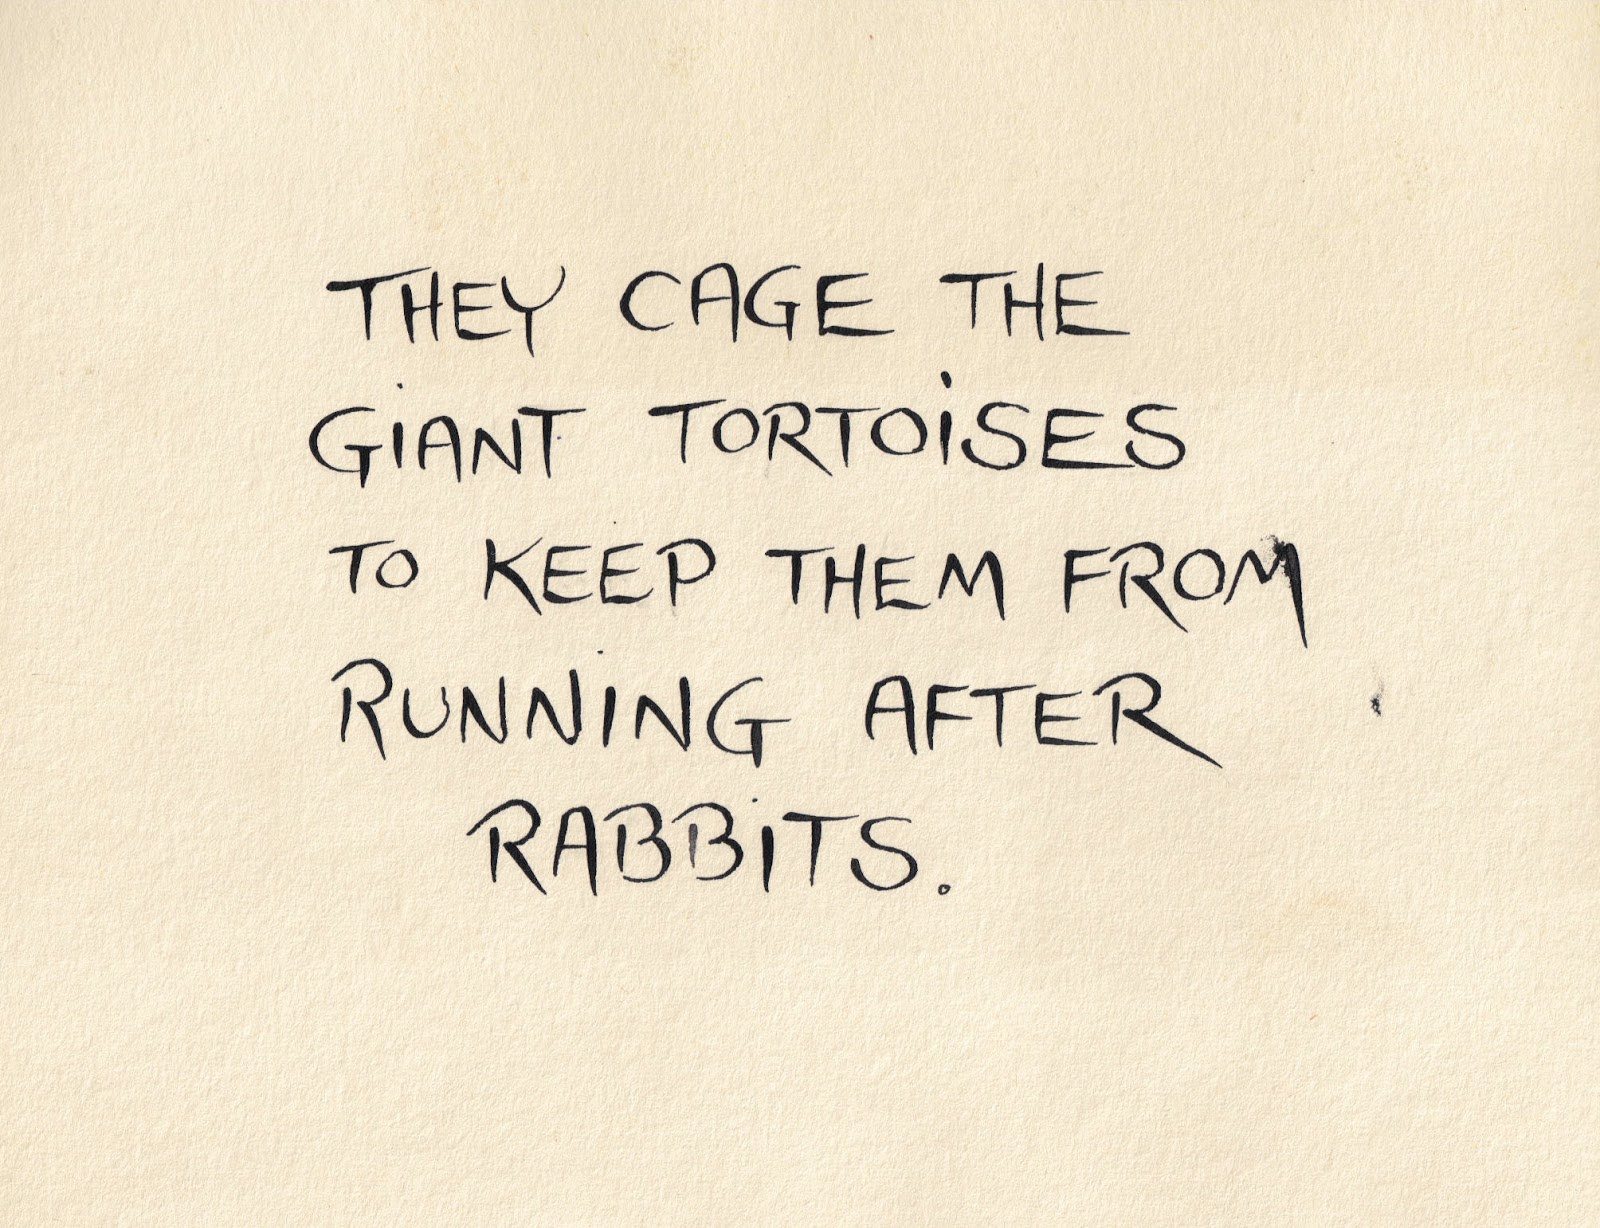 THEY CAGE THE
GiANT TORTOiSES
TO KEEP THEM FROM
RUNNiNG AFTER
RABBiTS.